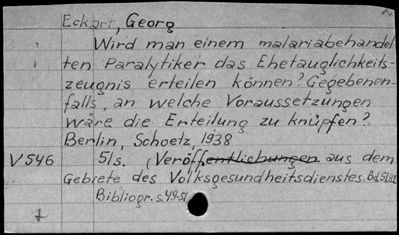 Eckart, Georg
Wird man einem malariabehandel
ten Paralytiker das Ehetauglichkeits-
zeugnis erteilen können? Gegebenen-
falls, an welche Voraussetzungen
wäre die Erteilung zu knüpfen?
Berlin, Schoetz, 1938
V546 51s. (Veröffentlichungen aus dem
Gebiete des Volksgesundheitsdienstes. Bd.51
Bibliogr. s.49-51